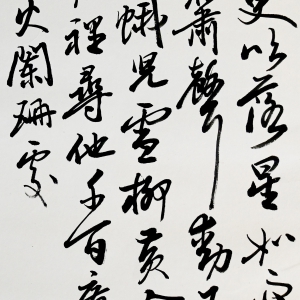 更吹落星如雨
簫聲動
蛾兒雪柳黃金
裡尋他千百度
火闌珊處